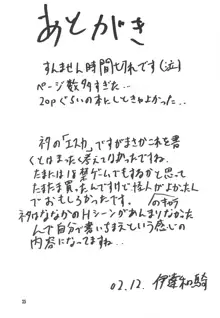 あとがき
すんません時間切れです(泣)
ページ数多すぎた…
20Pぐらいの本にしときゃよかった…
初の「エスカ」ですがまさかこれを書
くとはまったく考えてなかったですね。
たまには18禁ゲームでもするかと思って
たまたま買ったんですけど怪人がよかったん
でおもしろかったです。
のわりに
はななかのHシーンがあんまりなかった
んで自分で書いちまえという感じの
内容になってますね…
02.12.